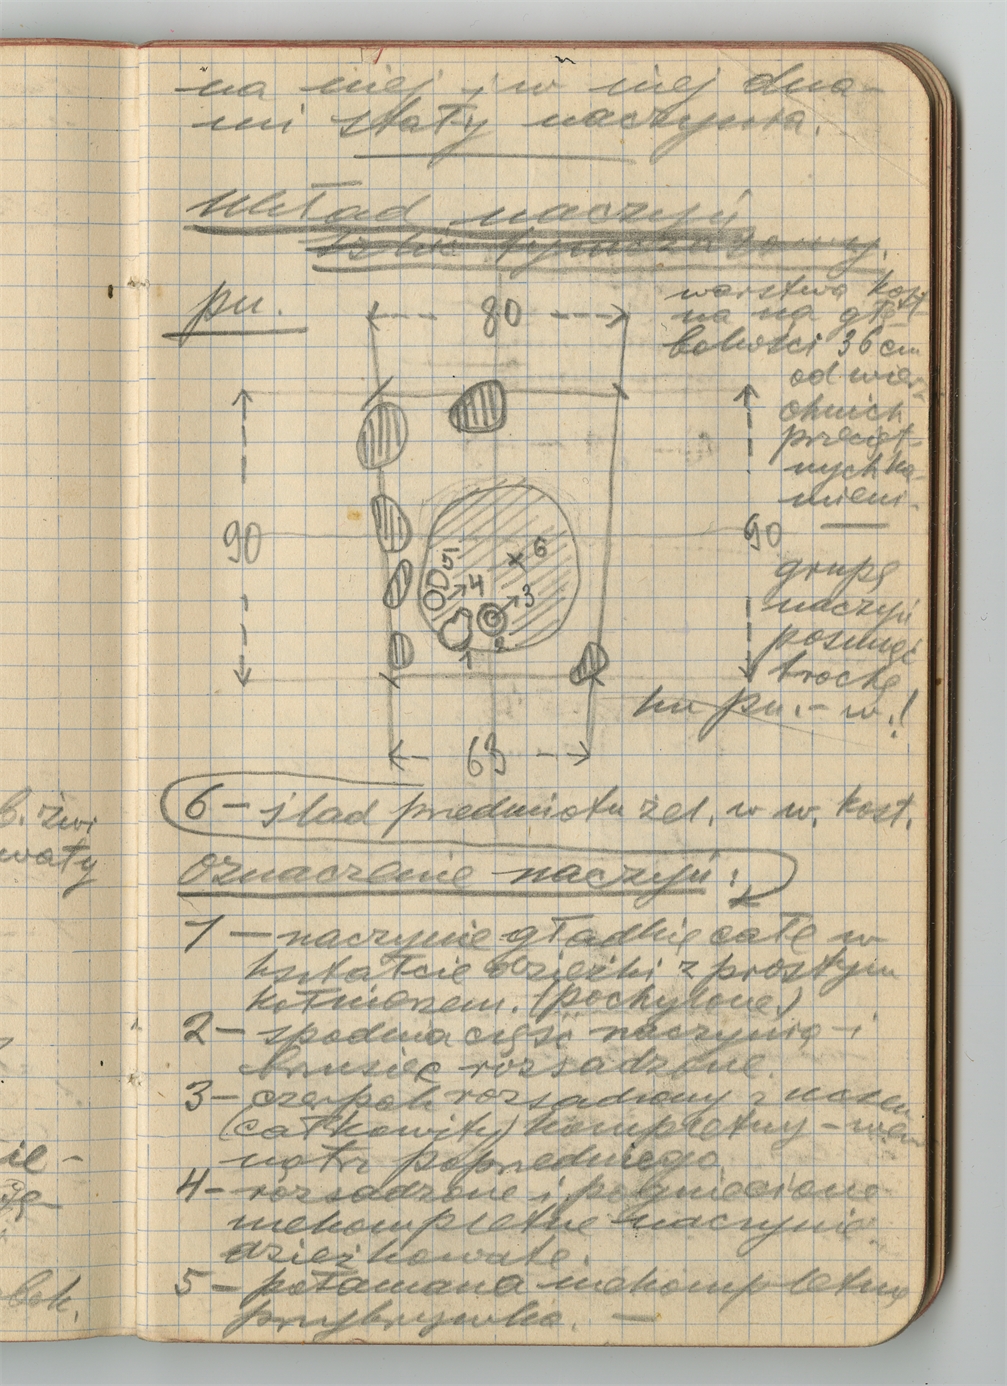 na niej i w niej dna-
mi stały naczynia.
Układ naczyń
pn.
80
warstwa kost
na na głę-
bokości 36 cm
od wierz-
chnich
przecięt-
nych ka-
mieni.
90
90
grupę
naczyń
posunąć
trochę
ku pn.-w.!
5
4
6
3
2
1
63
6 - ślad przedmiotu żel. w w. kost.
oznaczenie naczyń:
1 - naczynie gładkie całe w
kształcie dzieżki z prostym
kołnierzem. (pochylone)
2 - spodnia część naczynia i
brzusiec rozsadzone.
3 - czerpak rozsadzony z uchem
(całkowity) kompletny - wew
nątrz poprzedniego.
4 - rozsadzone i pogniecione
niekompletne naczynie
dzieżkowate.
5 - połamana niekompletna
przykrywka. -
b. żwi
waty
ie -
bok.